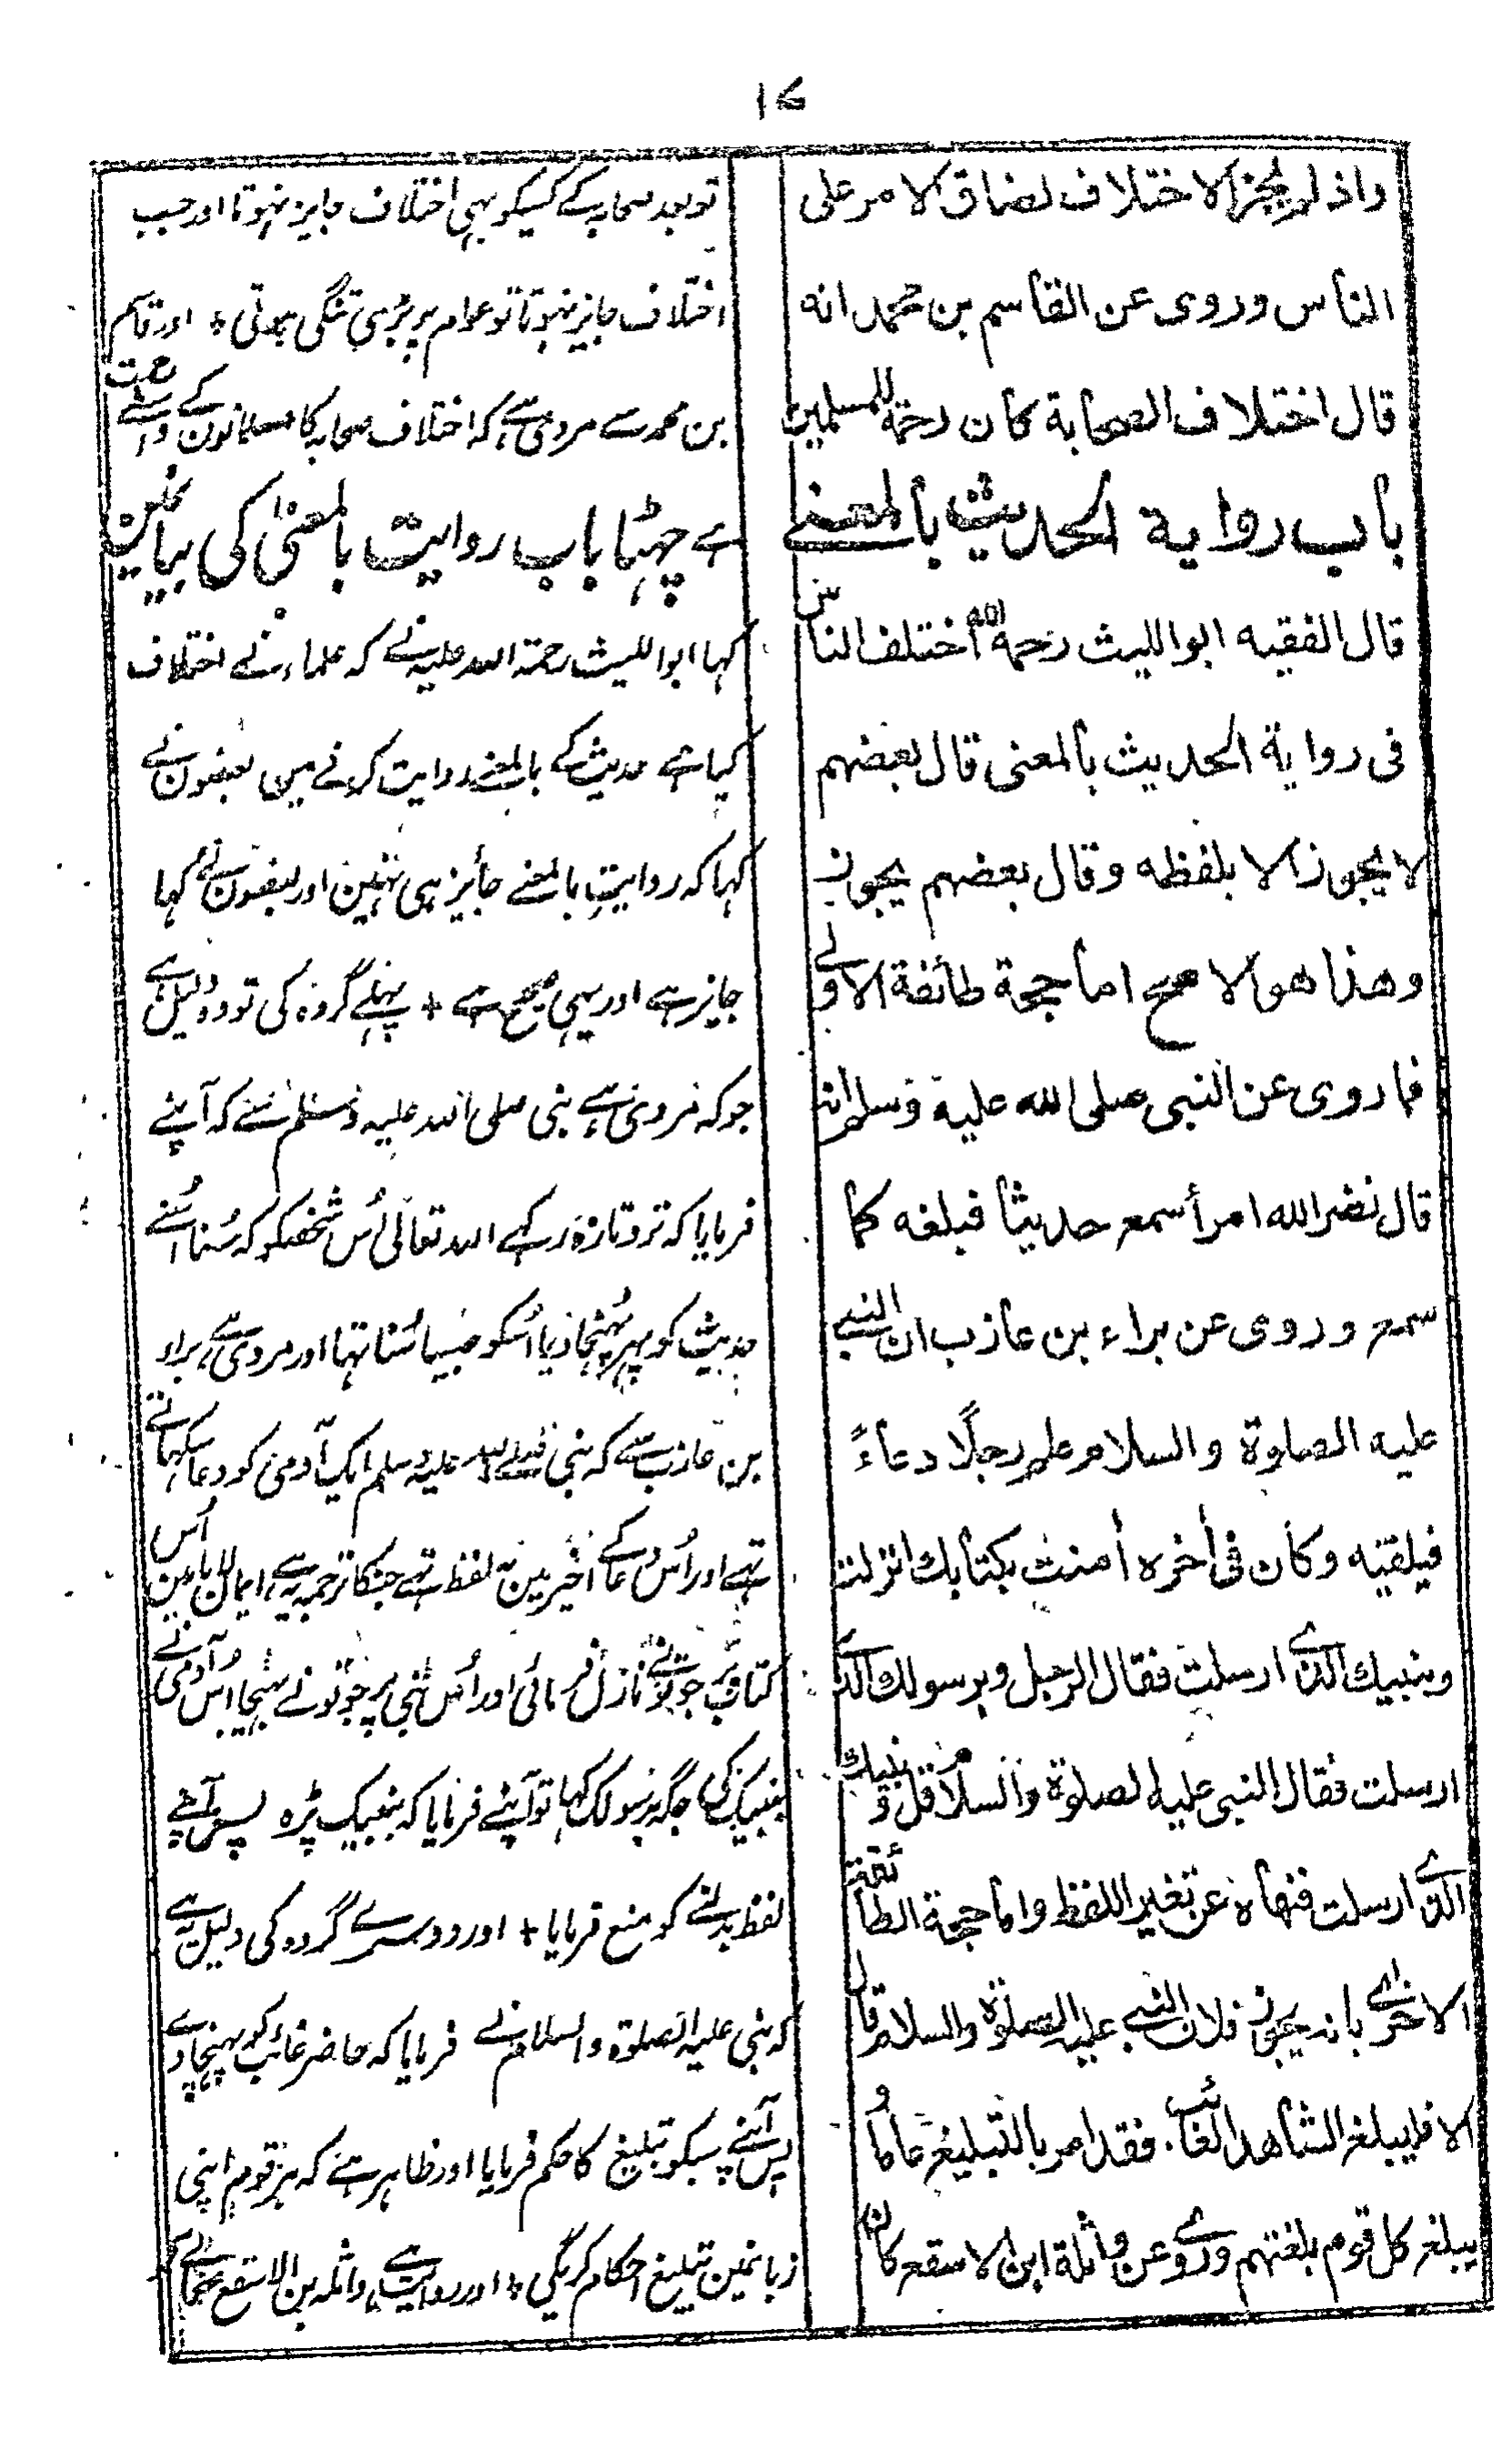 ١٧
واذ لم يجز الاختلاف لضاق الامر على
الناس وروى عن القاسم بن محمد انه
قال اختلاف الصحابة كان رحمة للمسلمين
باب رواية الحديث بالمعنے
قال الفقيه ابو الليث رحمه الله اختلف الناس
فى رواية الحديث بالمعنى قال بعضهم
لا يجوز الا بلفظه وقال بعضهم يجوز
وهذا هو الاصح اما حجة طائفة الاولے
فما روى عن النبى صلى الله عليه وسلم انه
قال نضر الله امرأ سمع حديثا فبلغه كما
سمع و روى عن براء بن عازب ان النبے
عليه الصلوة والسلام علم رجلًا دعاءً
فيلقيه وكان فى أخره أمنت بكتابك انزلت
وبنبيك الذے ارسلت فقال الرجل وبرسولك الذے
ارسلت فقال النبى عليه الصلوة والسلام قل و نبيك
الذے ارسلت فنهاه عن تغير اللفظ واما حجة الطائفة
الاخرے بانه يجوز فلان النبے عليه الصلوة والسلام قال
الا فليبلغ الشاهد الغائب فقد امر بالتبليغ عاما و
يبلغ كل قوم بلغتهم وروے عن واثلة ابن الاسقع كان
تو بعد صحابہ کے کسیکو بہی اختلاف جایز نہوتا اور جب
اختلاف جایز نہوتا تو عوام پر بڑہی تنگی ہوتی + اور قاسم
بن محمد سے مروی ہے کہ اختلاف صحابہ کا مسلمانون کے واسطے رحمت
ہے چہٹا باب روایت بالمعنیٰ کی بیانمین
کہا ابو اللیث رحمتہ اللہ علیہ نے کہ علماء نے اختلاف
کیا ہے حدیث کے بالمعنے روایت کرنے میں بعضون نے
کہا کہ روایتِ بالمعنے جایز ہی نہین اور بعضون نے کہا
جایز ہے اور یہی صحیح ہے + پہلے گروہ کی تو وہ دلیل ہے
جو کہ مروی ہے نبی صلی اللہ علیہ وسلم سے کہ آپنے
فرمایا کہ تروتازہ رکہے اللہ تعالیٰ اُس شخصکو کہ سُنا اُسنے
حدیث کو پہر پُہنچا دیا اُسکو جیسا سُنا تہا اور مروی ہے براء
بن عازب سے کہ نبی صلے اللہ علیہ وسلم ایک آدمی کو دعا سکہاتے
تہے اور اُس دعا کے اخیر مین یہ لفظ تہے جنکا ترجمہ یہ ہے ایمان لایا مین اُس
کتاب پر جو تونے نازل فرمائی اور اُس نبی پر جو تو نے بہیجا اُس آدمی نے
بنبیک کی جگہ برسولک کہا تو آپنے فرمایا کہ بنبیک پڑہ پس آپنے
لفظ بدلنے کو منع فرمایا + اور دوسرے گروہ کی دلیل یہ ہے
کہ نبی علیہ الصلوۃ والسلام نے فرمایا کہ حاضر غائب کو پہنچا دے
پس آپنے سبکو تبلیغ کا حکم فرمایا اور ظاہر ہے کہ ہر قوم اپنی
زبانمین تبلیغ احکام کریگی + اور روایت ہے واثلہ بن الاسقع